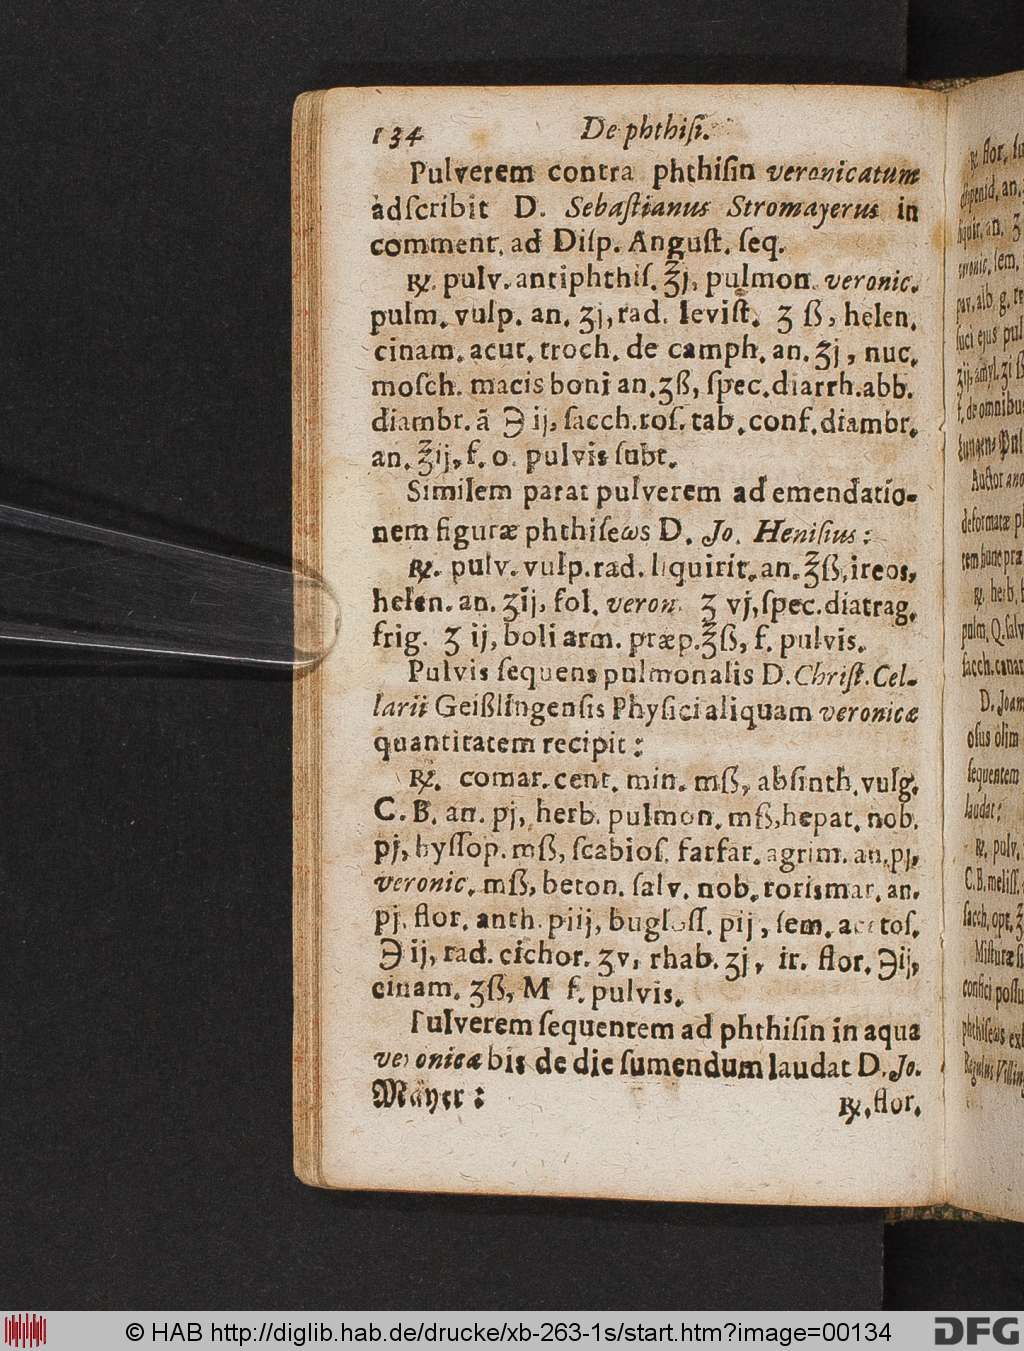 134 De phthiſi.
Pulverem contra phthiſin veronicatum
adſcribit D. Sebaſtianus Stromayerus in
comment. ad Diſp. Anguſt. ſeq.
℞. pulv. antiphthiſ. ℥j, pulmon. veronic.
pulm. vulp. an. ʒj, rad. leviſt. ʒ ß, helen.
cinam. acut. troch. de camph. an. ℈j, nuc.
moſch. macis boni an. ʒß, ſpec. diarrh. abb.
diambr. ã ℈ ij, ſacch. roſ. tab. conf. diambr.
an. ℥ij, f. o. pulvis ſubt.
Similem parat pulverem ad emendatio-
nem figuræ phthiſeωs D. Jo. Heniſius:
℞. pulv. vulp. rad. liquirit. an. ℥ß, ireos,
helen. an. ʒij, fol. veron. ʒ vj, ſpec. diatrag.
frig. ʒ ij, boli arm. præp. ℥ß, f. pulvis.
Pulvis ſequens pulmonalis D. Chriſt. Cel-
larii Geißlingenſis Phyſici aliquam veronicæ
quantitatem recipit:
℞. comar. cent. min. mß, abſinth. vulg.
C. B. an. pj, herb. pulmon. mß, hepat. nob.
pj, hyſſop. mß, ſcabioſ. farfar. agrim. an. pj,
veronic. mß, beton. ſalv. nob. rorismar. an.
pj, flor. anth. piij, bugloſſ. pij, ſem. acetoſ.
℈ ij, rad. cichor. ʒv, rhab. ʒj, ir. flor. ℈ij,
cinam. ʒß, M f. pulvis.
Pulverem ſequentem ad phthiſin in aqua
veronicæ bis de die ſumendum laudat D. Jo.
Mäyer:
℞. flor.
© HAB http://diglib.hab.de/drucke/xb-263-1s/start.htm?image=00134
DFG